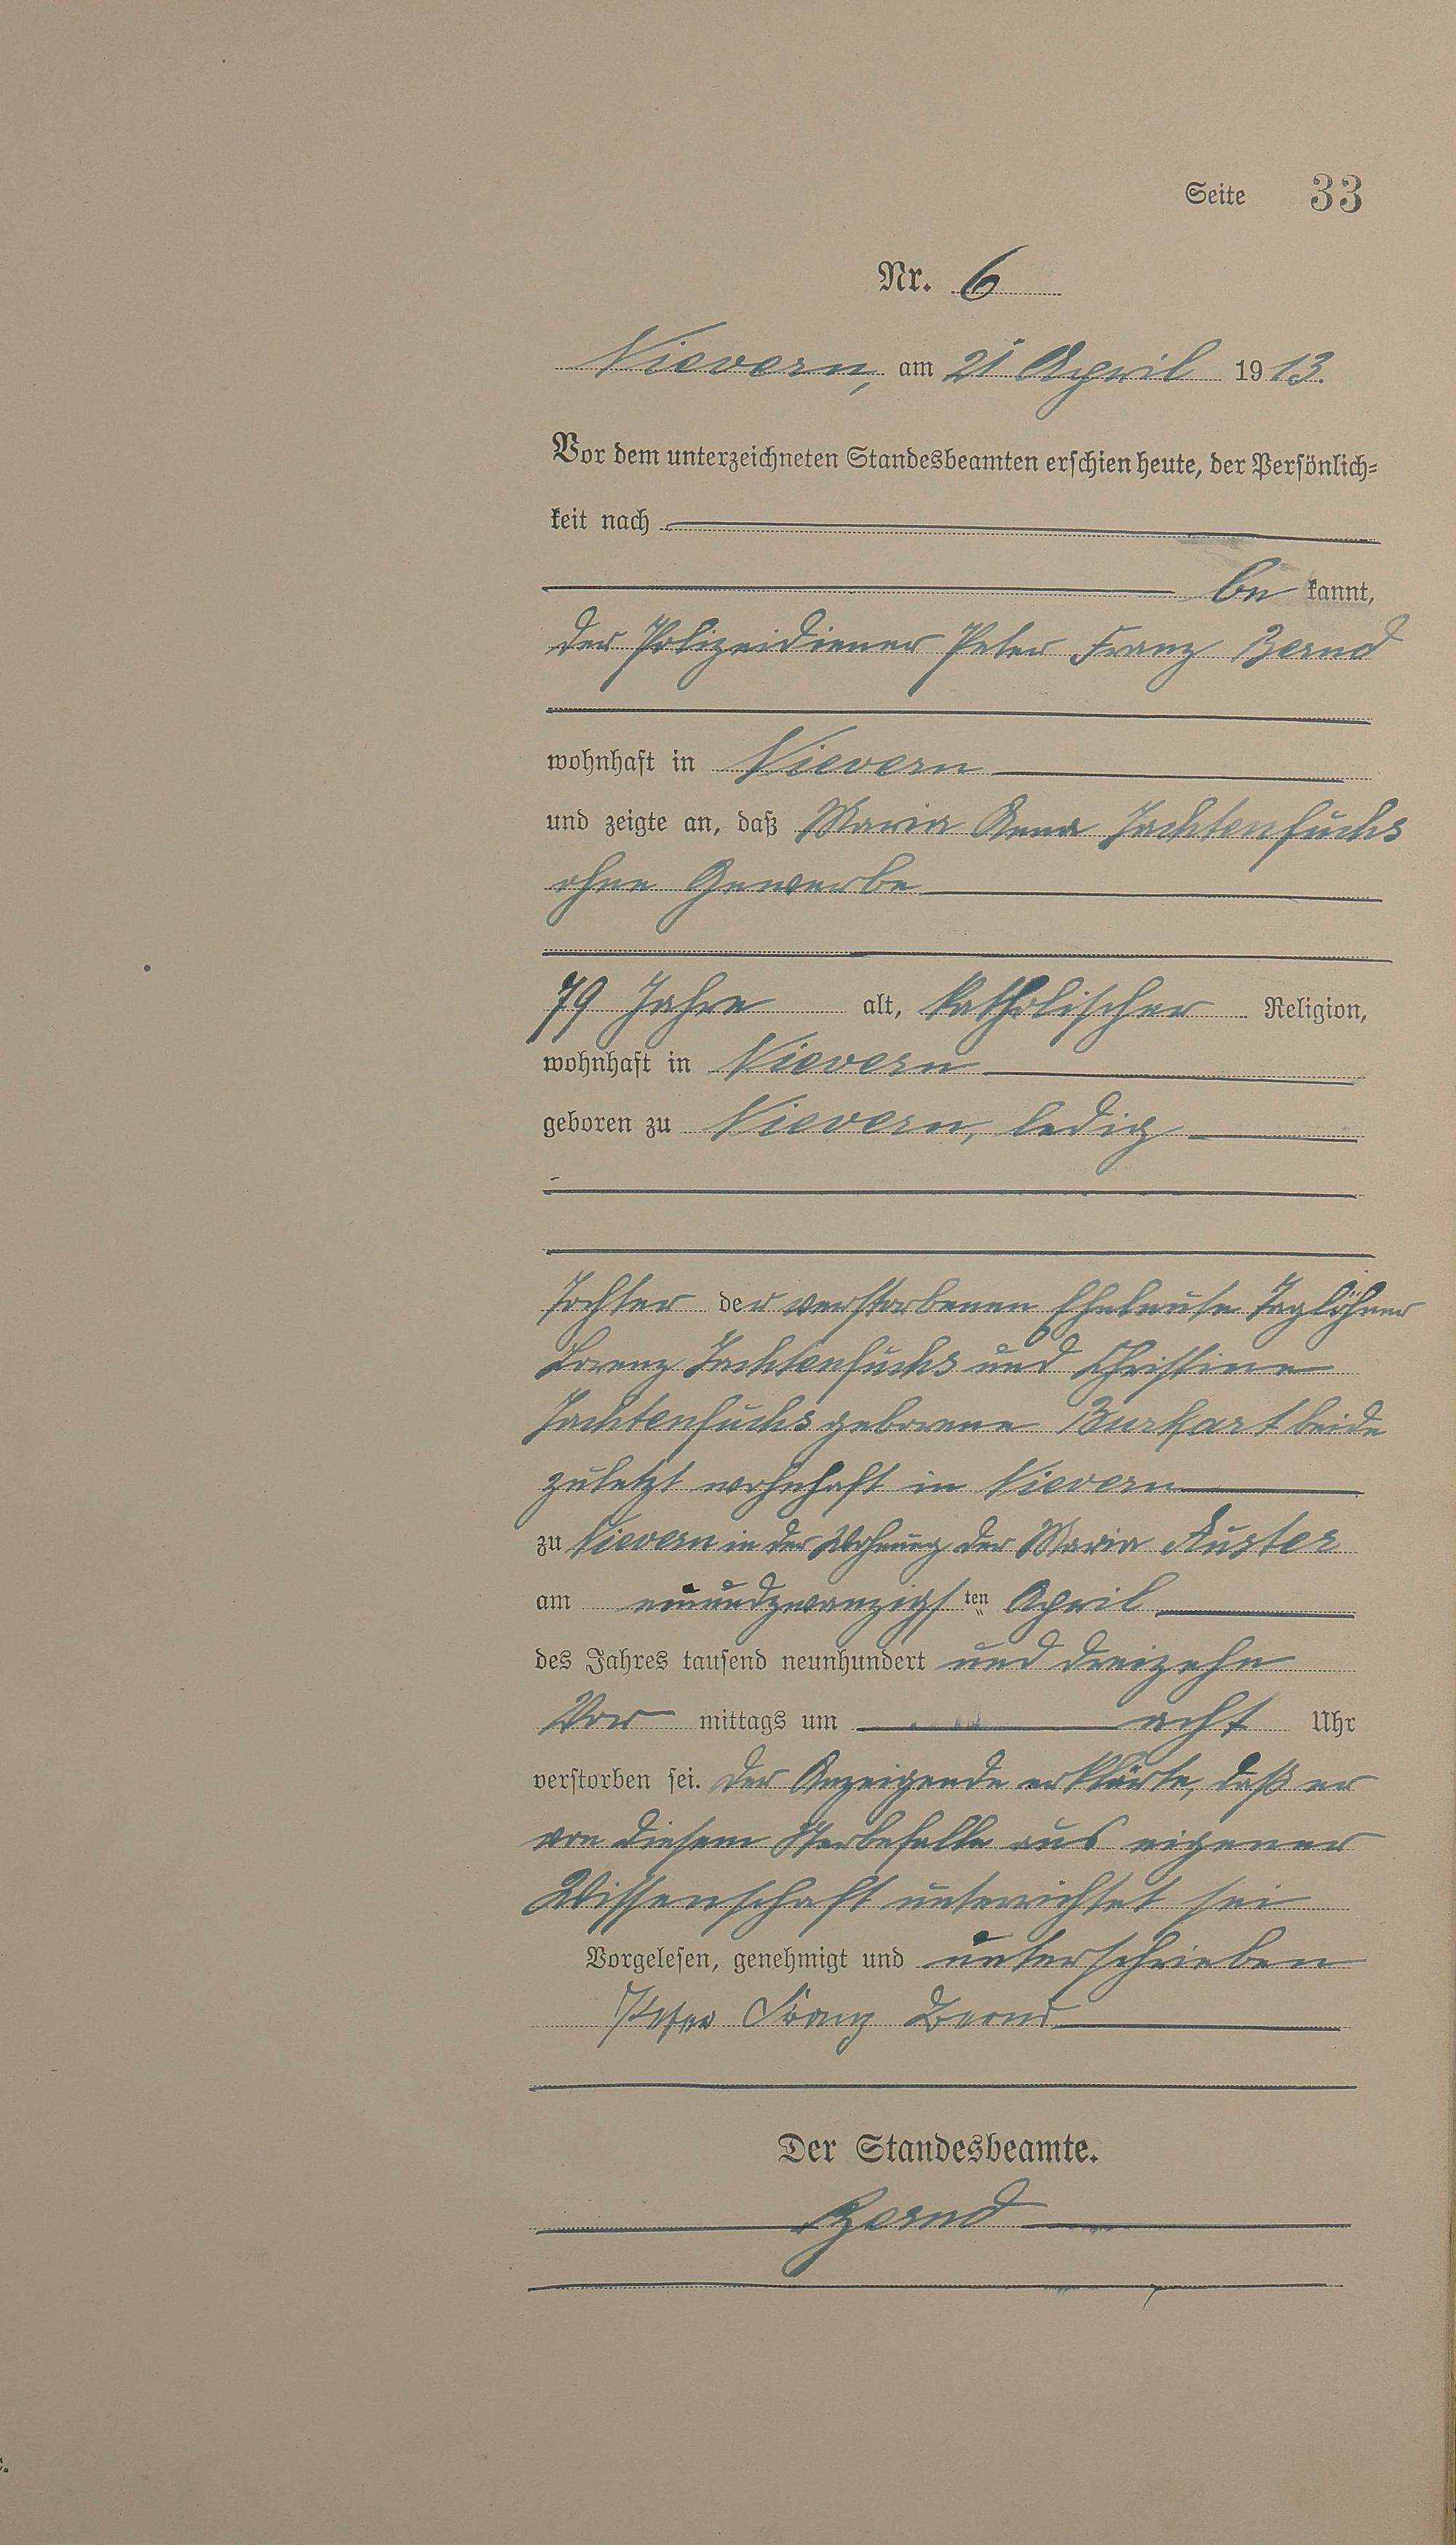 Seite 33
Nr. 6
Nievern, am 21 April 1913.
Vor dem unterzeichneten Standesbeamten erschien heute, der Persönlich=
keit nach
be kannt,
der Polizeidiener Peter Franz Bernd
wohnhaft in Nievern
und zeigte an, daß Maria Anna Jachtenfuchs
ohne Gewerbe
79 Jahre alt, katholischer Religion,
wohnhaft in Nievern
geboren zu Nievern, ledig
Tochter der verstorbenen Eheleute Taglöhner
Lorenz Jachtenfuchs und Christine
Jachtenfuchs geborene Burkart beide
zuletzt wohnhaft in Nievern
zu Nievern in der Wohnung der Maria Auster
am einundzwanzigsten April
des Jahres tausend neunhundert und dreizehn
Vor mittags um acht Uhr
verstorben sei. Der Anzeigende erklärte, daß er
von diesem Sterbefalle aus eigener
Wissenschaft unterrichtet sei
Vorgelesen, genehmigt und unterschrieben
Peter Franz Bernd
Der Standesbeamte.
Bernd